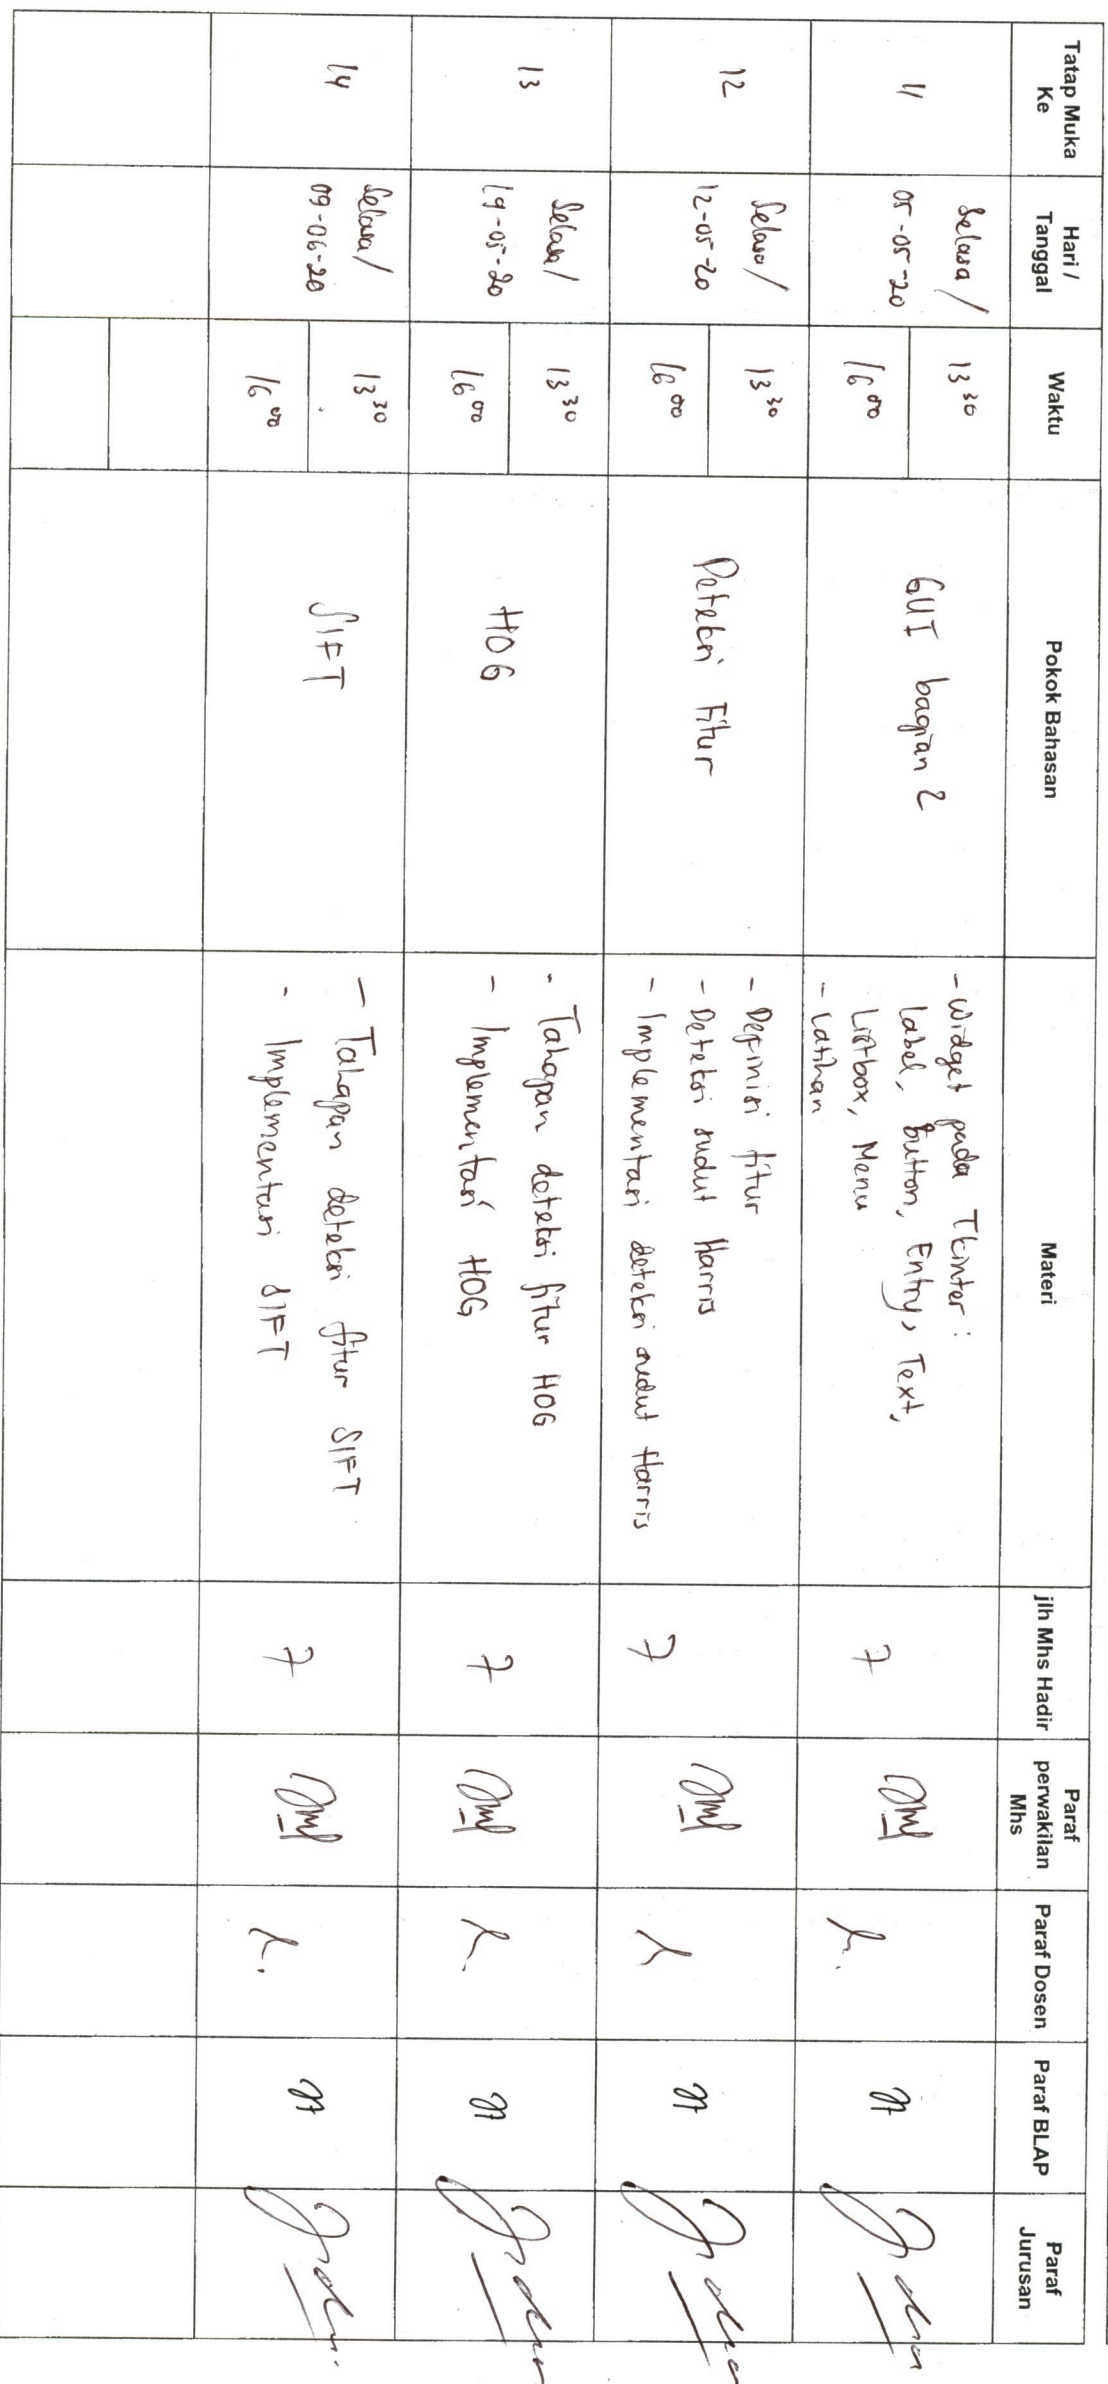 Tatap Muka
Ke
Hari /
Tanggal
Waktu
Pokok Bahasan
Materi
jlh Mhs Hadir
Paraf
perwakilan
Mhs
Paraf Dosen
Paraf BLAP
Paraf
Jurusan
11
Selasa /
05-05-20
13 30
16 00
GUI bagian 2
- Widget pada Tkinter :
Label, Button, Entry, Text,
Listbox, Menu
- Latihan
7
12
Selasa /
12-05-20
13 30
16 00
Deteksi Fitur
- Definisi fitur
- Deteksi sudut Harris
- Implementasi deteksi sudut Harris
7
13
Selasa /
19-05-20
13 30
16 00
HOG
- Tahapan deteksi fitur HOG
- Implementasi HOG
7
14
Selasa /
09-06-20
13 30
16 00
SIFT
- Tahapan deteksi fitur SIFT
- Implementasi SIFT
7